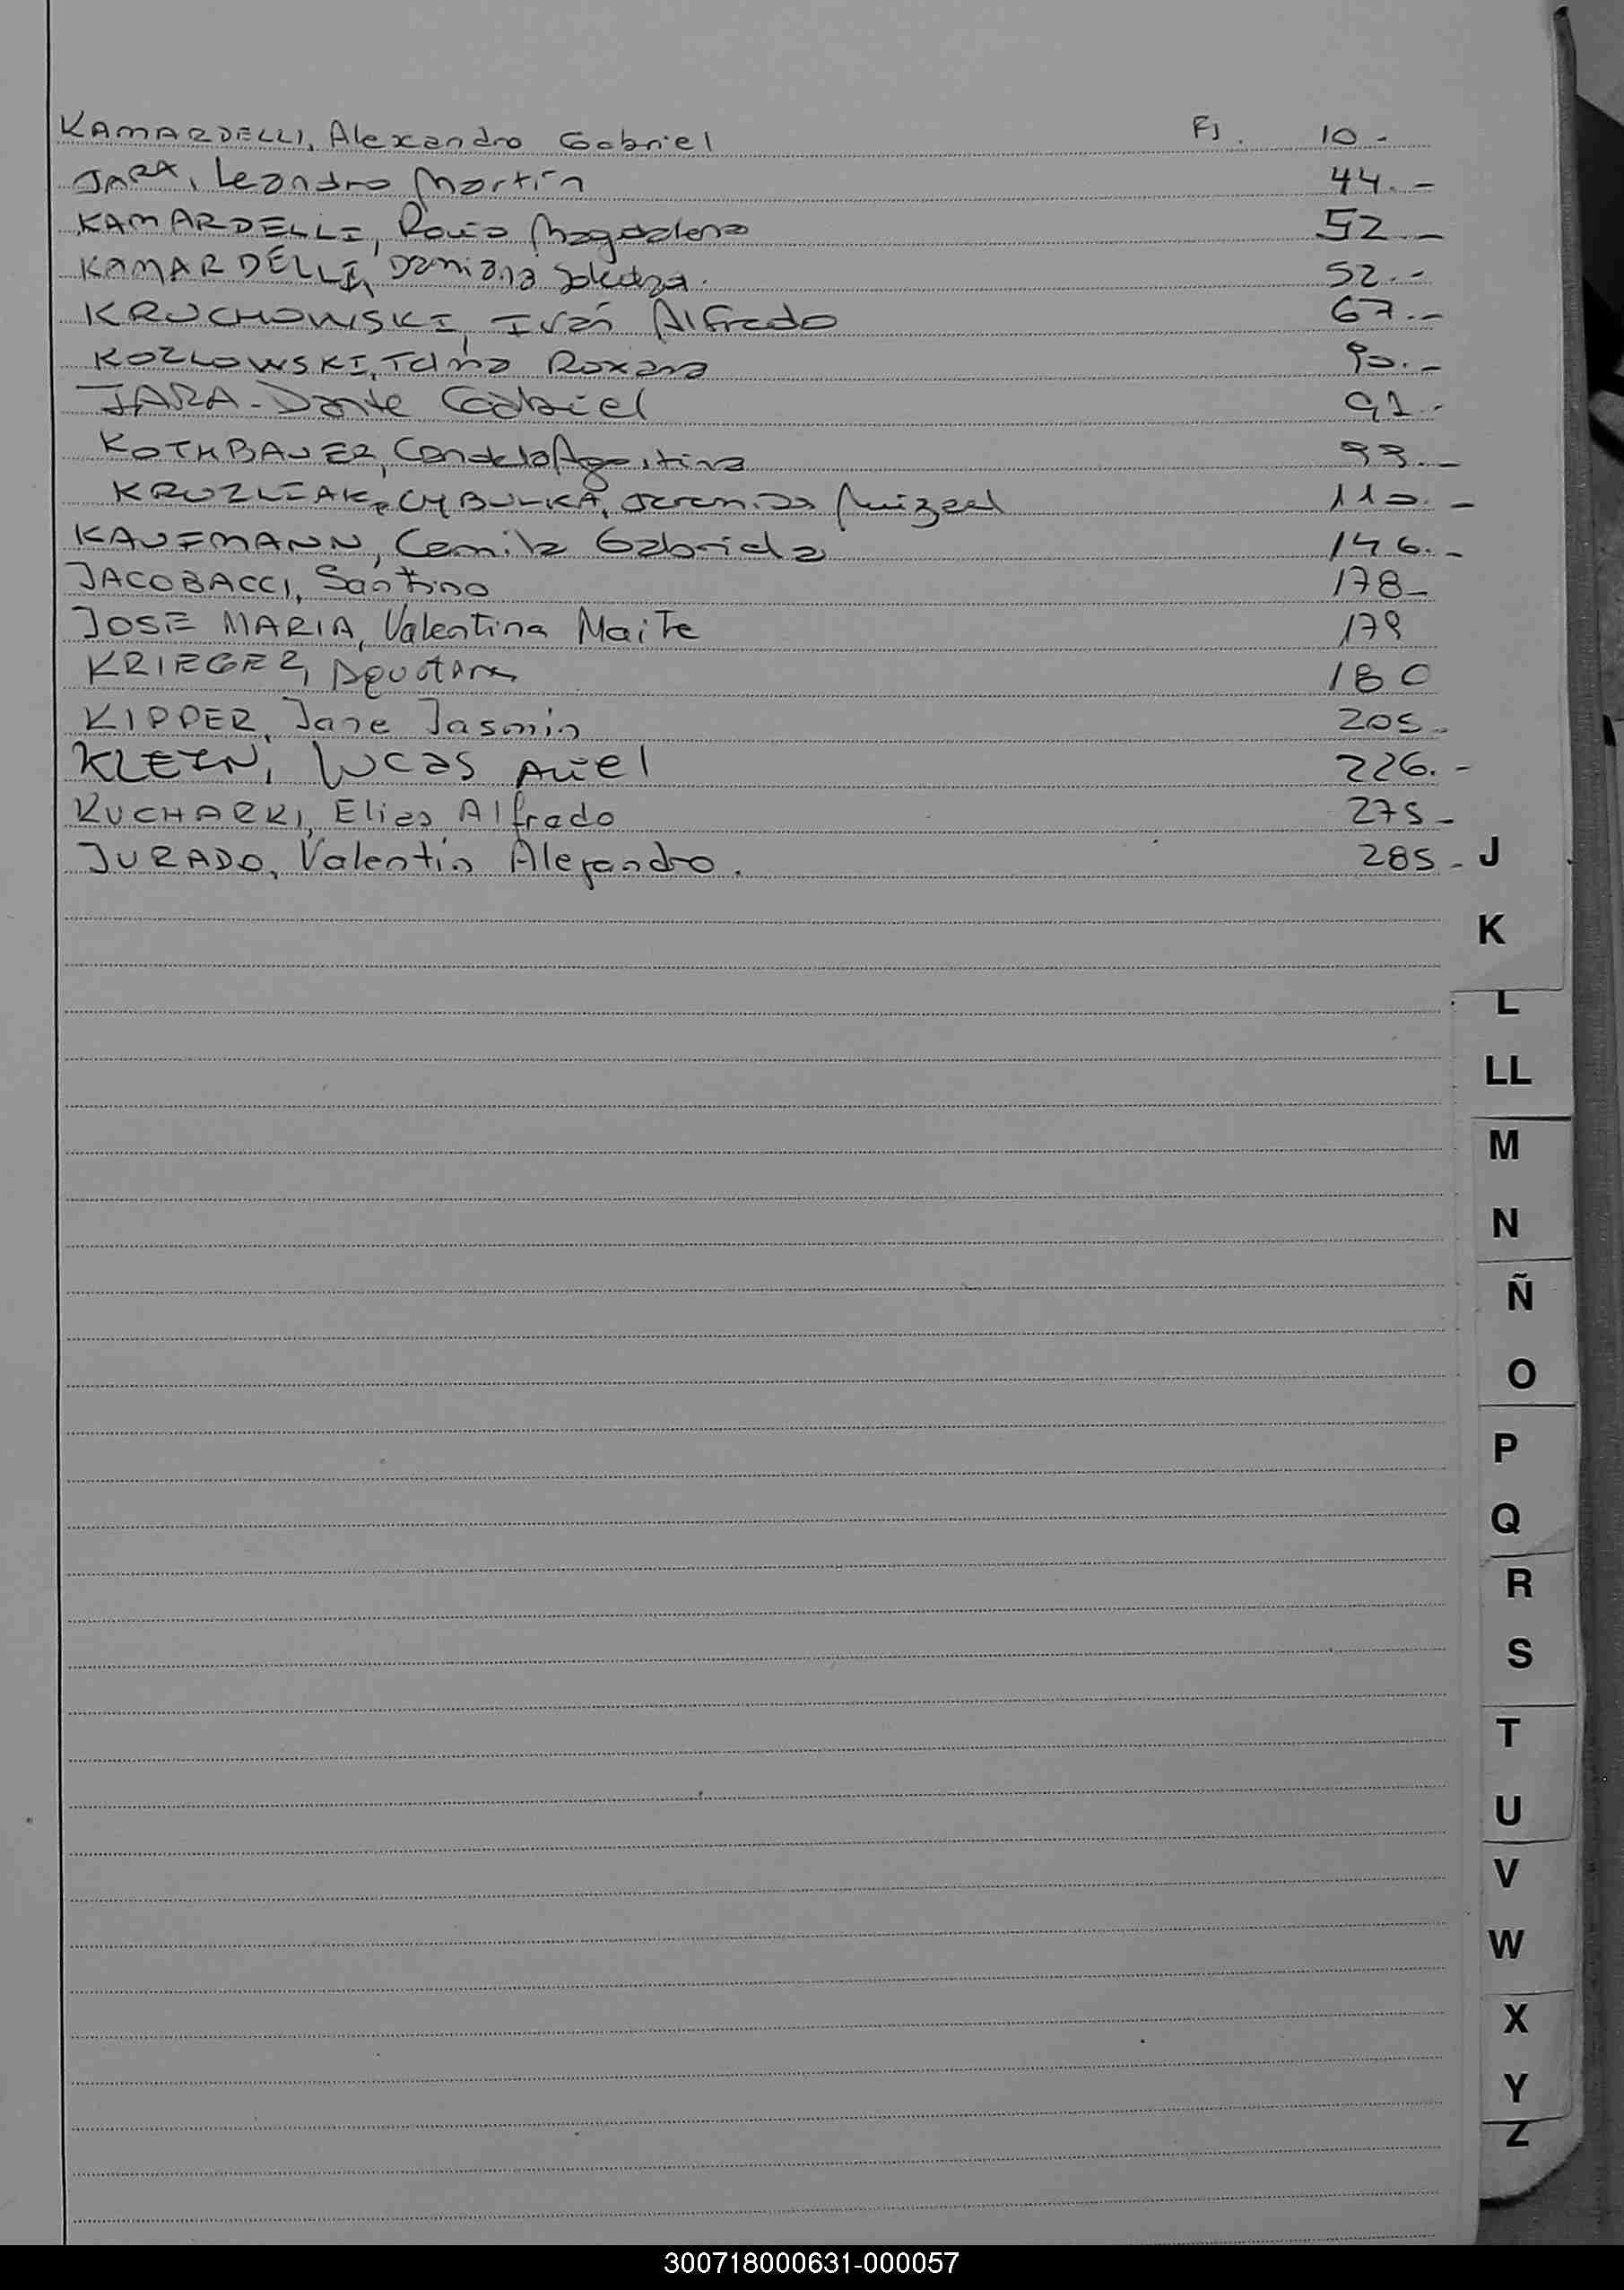 KAMARDELLI, Alexandro Gabriel Fj. 10.-
JARA, Leandro Martín 44.-
KAMARDELLI, Rocío Magdalena 52.-
KAMARDELLI, Damiana 52.-
KRUCHOWSKI, Iván Alfredo 67.-
KOZLOWSKI, Tania Roxana 90.-
JARA-Dante Gabriel 91.-
KOTHBAUER, Candela Agostina 93.-
CYBULKA, Jeremías 110.-
KAUFMANN, Camila Gabriela 146.-
JACOBACCI, Santino 178-
JOSE MARIA, Valentina Maite 179
KRIEGER, Agustina 180
KIPPER, Jane Jasmin 205-
KLEIN, Lucas Ariel 226.-
KUCHARKI, Elias Alfredo 275-
JURADO, Valentín Alejandro. 285-
J
K
L
LL
M
N
Ñ
O
P
Q
R
S
T
U
V
W
X
Y
Z
300718000631-000057